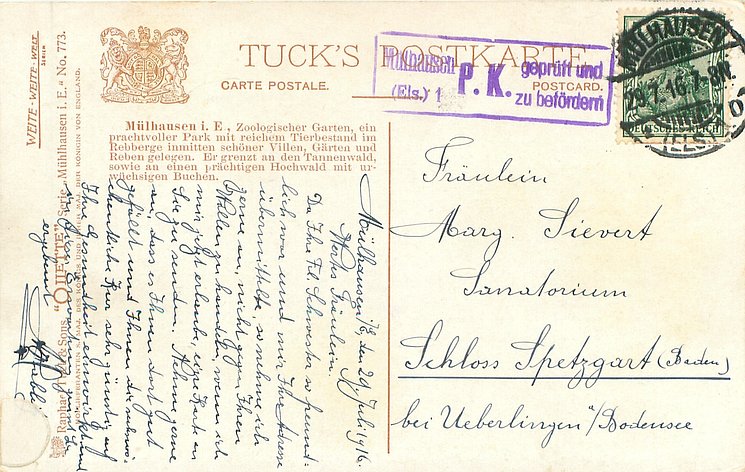 TUCK'S POSTKARTE
CARTE POSTALE.
POSTCARD.
Mülhausen
(Els.) 1
P. K.
geprüft und
zu befördern
MÜLHAUSEN
29.7.16.7-8N.
(ELS.)
DEUTSCHES REICH
WEITE-WEITE-WELT
SERIEN
Raphael Tuck & Sons. "OILETTE" Serie „Mühlhausen i. E." No. 773.
HOFLIEFERANTEN S. MAJ. DES KÖNIGS UND IHRER MAJ. DER KÖNIGIN VON ENGLAND.
Mülhausen i. E., Zoologischer Garten, ein
prachtvoller Park mit reichem Tierbestand im
Rebberge inmitten schöner Villen, Gärten und
Reben gelegen. Er grenzt an den Tannenwald,
sowie an einen prächtigen Hochwald mit ur-
wüchsigen Buchen.
Mülhausen i/E, den 29 Juli 1916.
Wertes Fräulein
Da Ihre Frl. Schwester so freund-
lich war und mir Ihre Adresse
übermittelte, so nehme ich
gerne an, nicht gegen Ihren
Willen zu handeln, wenn ich
mir jetzt erlaube, eine Karte an
Sie zu senden. Nehme gerne
an, dass es Ihnen dort gut
gefällt und Ihnen die
Kur sehr günstig auf
Ihre Gesundheit einwirkt und
ergebenst
Fräulein
Marg. Sievert
Sanatorium
Schloss Spetzgart (Baden)
bei Ueberlingen a/Bodensee